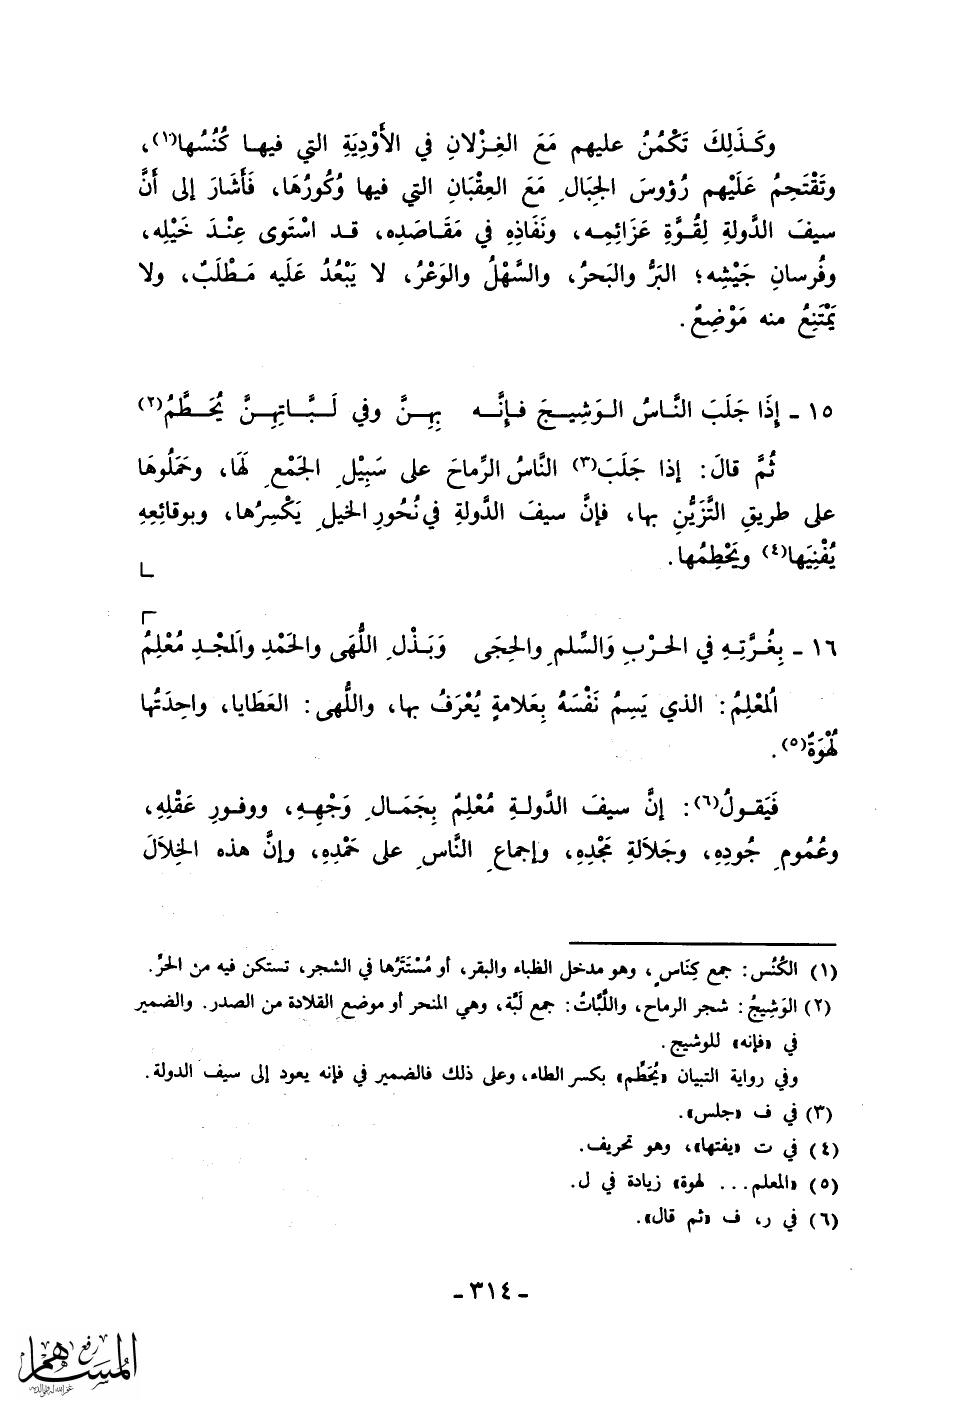 وكَـذَلِكَ تَكْمُنُ عليهم مَعَ الغِـزْلانِ في الأَوْدِيَةِ التي فيهـا كُنُسُهـا(١)،
وتَقْتَحِمُ عَلَيْهم رُؤوسَ الجِبَالِ مَعَ العِقْبَانِ التي فيها وُكُورُهَا، فَأَشَارَ إلى أَنَّ
سيفَ الدَّولةِ لِقُـوَّةِ عَزَائِمِـه، ونَفَاذِهِ في مَقَـاصَدِه، قـد اسْتَوى عِنْـدَ خَيْلِه،
وفُرسانِ جَيْشِه؛ البَرُّ والبَحرُ، والسَّهْلُ والوَعْرُ، لا يَبْعُدُ عَلَيه مَـطْلَبٌ، ولا
يَمْتَنِعُ منه مَوْضِعٌ.
١٥ ـ إِذَا جَلَبَ النَّاسُ الـوَشِيـجَ فـإِنَّـه بِهِـنَّ وفي لَـبَّـاتِهِـنَّ يُحَـطَّمُ(٢)
ثُمَّ قالَ: إذا جَلَبَ(٣) النَّاسُ الرِّماحَ على سَبِيْلِ الجَمْعِ لَهَا، وحَمَلُوهَا
على طريقِ التَّزَيُّنِ بها، فإنَّ سيفَ الدَّولةِ في نُحُورِ الخيلِ يَكْسِرُها، وبوقائِعِهِ
يُفْنِيَها(٤) ويَحْطِمُها.
١٦ ـ بِغُـرَّتِـهِ في الحرْبِ وَالسَّلمِ والحِجَى وَبَـذْلِ اللُّهَى والحَمْدِ واَلمجْـدِ مُعْلِمُ
اَلمُعْلِمُ: الذي يَسِمُ نَفْسَهُ بِعَلامةٍ يُعْرَفُ بها، واللُّهى: العَطَايا، واحِدَتُها
لُهْوَةٌ(٥).
فَيَقـولُ(٦): إنَّ سيـفَ الدَّولـةِ مُعْلِمٌ بِجَمَـالِ وَجْهِـهِ، ووفـورِ عَقْلِهِ،
وعُمُومِ جُودِهِ، وجَلاَلةِ مَجْدِهِ، وإجماعِ النَّاسِ على حَمْدِهِ، وإنَّ هذه الخِلاَلَ
(١) الكُنُس: جمع كِنَاسٍ، وهو مدخل الظباء والبقر، أو مُسْتَتَرُها في الشجر، تستكن فيه من الحرِّ.
(٢) الوَشِيجُ: شجر الرماح، واللَّبَّاتُ: جمع لَبَّة، وهي المنحر أو موضع القلادة من الصدر. والضمير
في «فإنه» للوشيج.
وفي رواية التبيان «يُحَطِّم» بكسر الطاء، وعلى ذلك فالضمير في فإنه يعود إلى سيف الدولة.
(٣) في ف «جلس».
(٤) في ت «يفتها»، وهو تحريف.
(٥) «المعلم... لهوة» زيادة في ل.
(٦) في ر، ف «ثم قال».
ـ ٣١٤ ـ